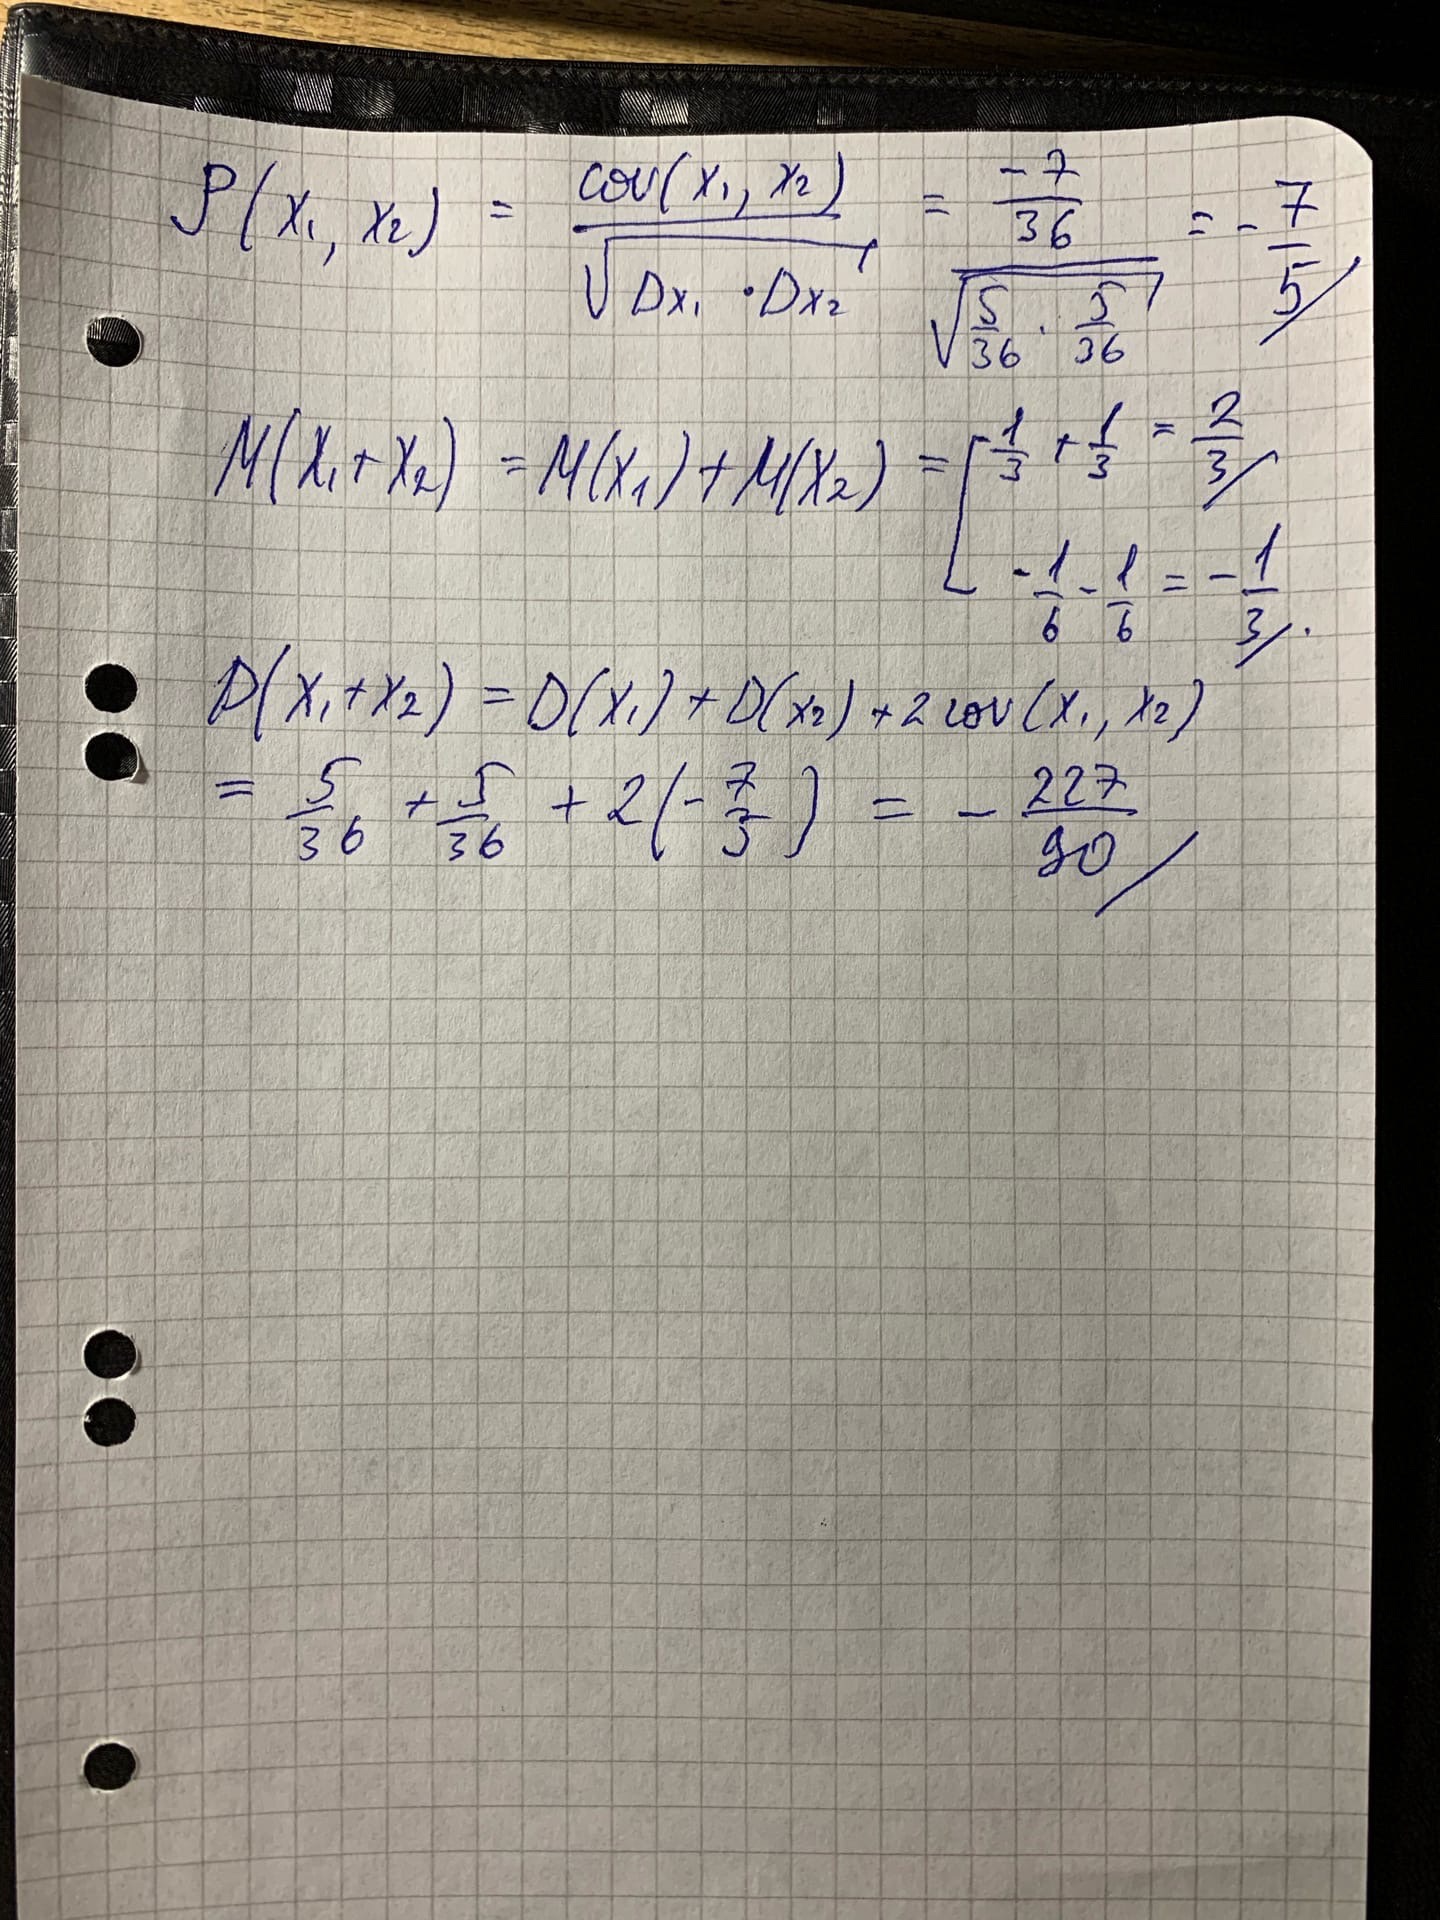 ρ(x₁, x₂) = cov(x₁, x₂) / √(Dx₁ · Dx₂) = (-7/36) / √(5/36 · 5/36) = -7/5
M(x₁+x₂) = M(x₁) + M(x₂) = [ 1/3 + 1/3 = 2/3
-1/6 - 1/6 = -1/3.
D(x₁+x₂) = D(x₁) + D(x₂) + 2cov(x₁, x₂)
= 5/36 + 5/36 + 2(-7/5) = -227/90